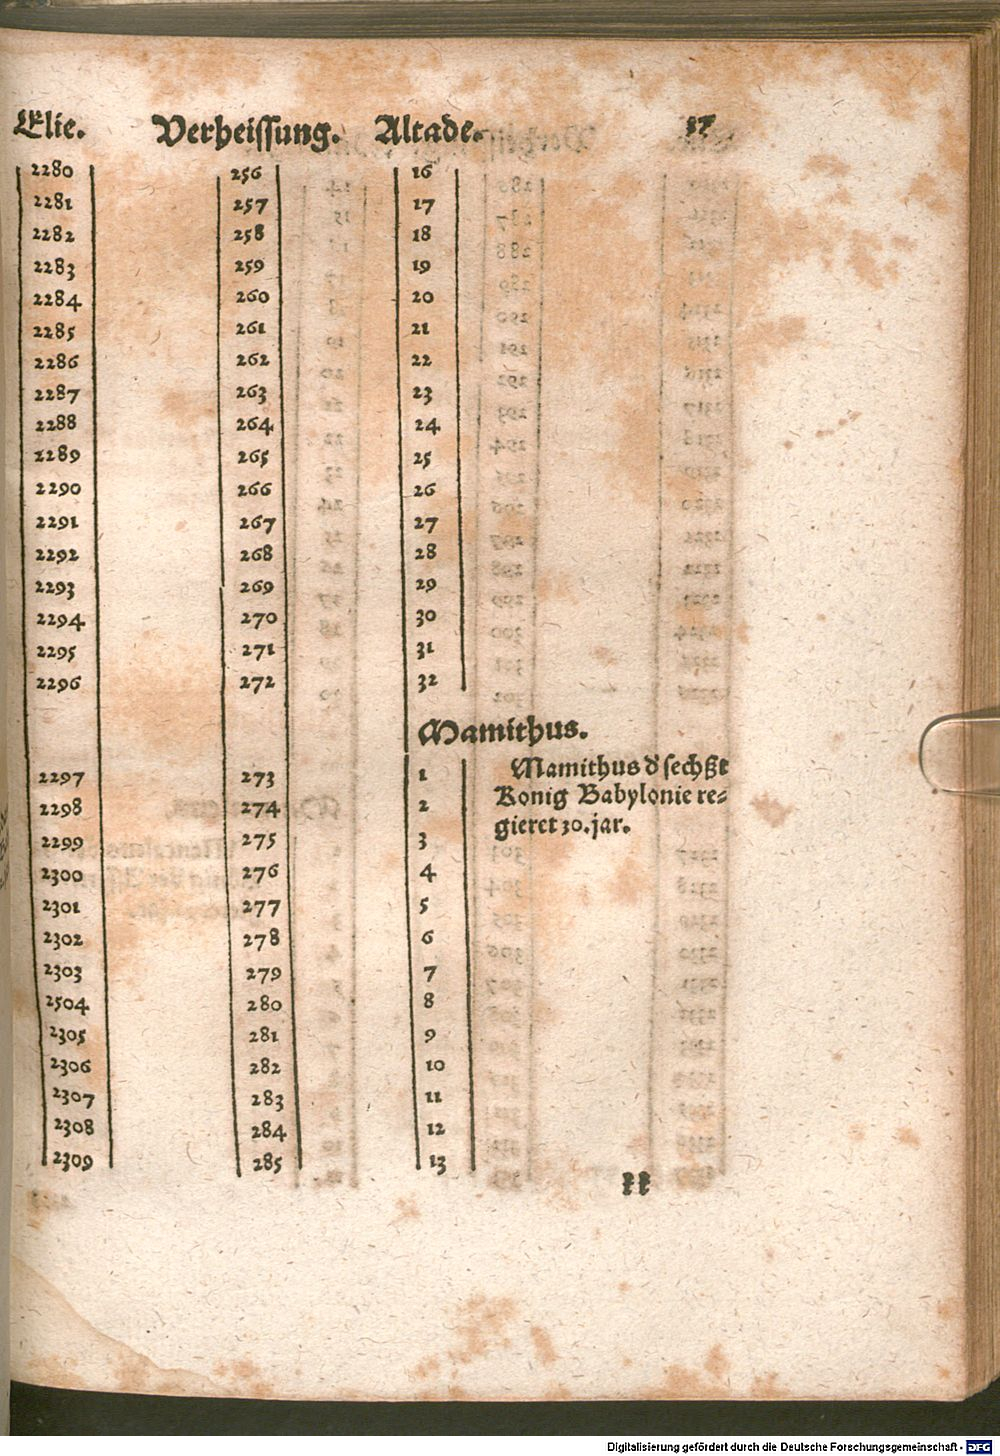 Elie. Verheissung. Altade. 37
2280 256 16
2281 257 17
2282 258 18
2283 259 19
2284 260 20
2285 261 21
2286 262 22
2287 263 23
2288 264 24
2289 265 25
2290 266 26
2291 267 27
2292 268 28
2293 269 29
2294 270 30
2295 271 31
2296 272 32
Mamithus.
2297 273 1 Mamithus d sechßt
2298 274 2 Konig Babylonie re-
2299 275 3 gieret 30. jar.
2300 276 4
2301 277 5
2302 278 6
2303 279 7
2504 280 8
2305 281 9
2306 282 10
2307 283 11
2308 284 12
2309 285 13
Digitalisierung gefördert durch die Deutsche Forschungsgemeinschaft - DFG